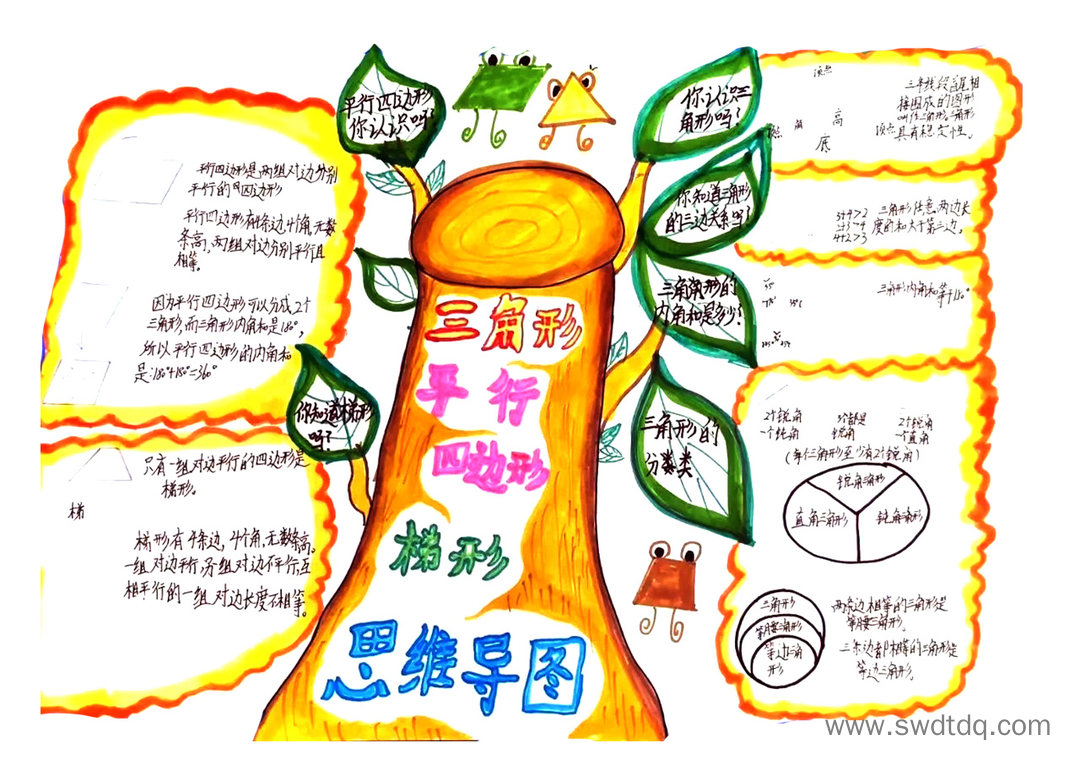 三角形
平行
四边形
梯形
思维导图
平行四边形
你认识吗?
平行四边形是两组对边分别
平行的四边形
平行四边形有4条边,4个角,无数
条高,两组对边分别平行且
相等。
因为平行四边形可以分成2个
三角形,而三角形内角和是180°,
所以平行四边形的内角和
是:180°+180°=360°
你知道梯形
吗?
只有一组对边平行的四边形是
梯形。
梯
梯形有4条边,4个角,无数条高。
一组对边平行,另一组对边不平行,互
相平行的一组对边长度不相等。
你认识三
角形吗?
顶点
角
高
底
顶点
三条线段首尾相
接围成的图形
叫作三角形。三角形
具有稳定性。
你知道三角形
的三边关系吗?
3+4>2
2+3>4
4+2>3
三角形任意两边长
度的和大于第三边。
三角形的
内角和是多少?
三角形内角和等于180°
三角形的
分类
2个锐角
一个钝角
3个都是
锐角
2个锐角
一个直角
(每个三角形至少有2个锐角)
锐角三角形
直角三角形
钝角三角形
三角形
等腰三角形
等边三角
形
两条边相等的三角形是
等腰三角形。
三条边都相等的三角形是
等边三角形。
www.swdtdq.com